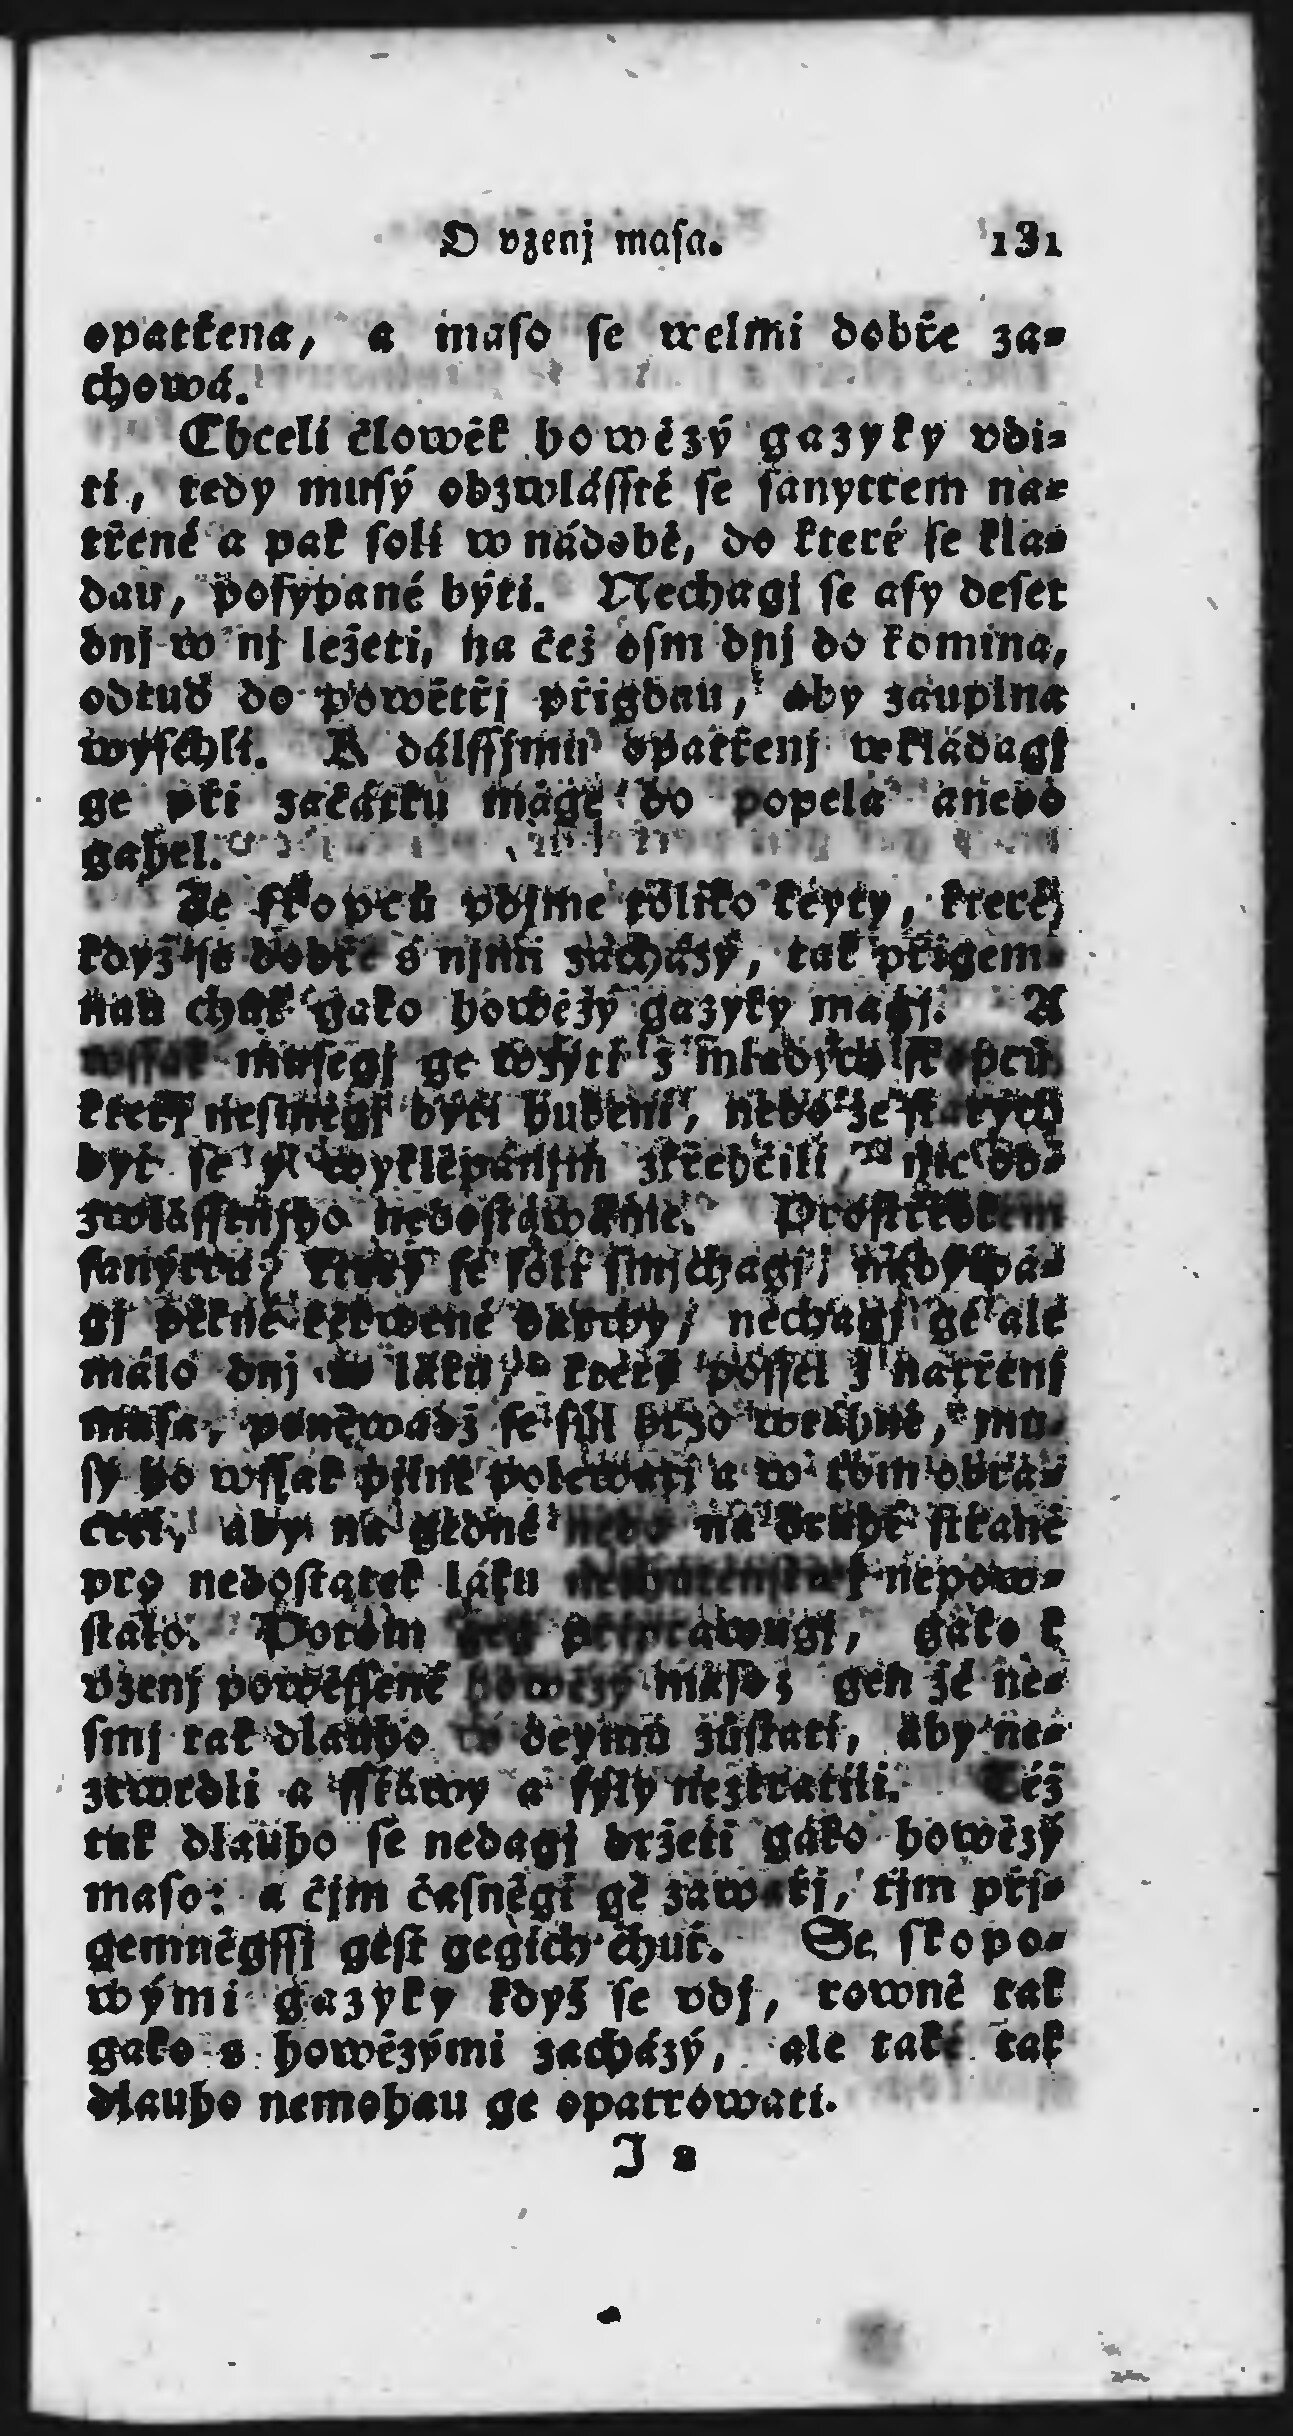 O vzenj maſa. 131
opatřena, a maſo ſe welmi dobře za-
chowá.
Chceli člowěk howězý gazyky vdi-
ti, tedy muſý obzwláſſtě ſe ſanyttem na-
třené a pak ſolí w nádobě, do které ſe kla-
dau, poſypané býti. Nechagj ſe aſy deſet
dnj w nj ležeti, na čež oſm dnj do komina,
odtud do powětřj přigdau, aby zauplna
wyſchli. K dálſſjmu opatřenj wkládagj
ge při začátku máge do popela anebo
gahel.
Ze ſkopců vdjme toliko keyty, které,
když ſe dobře s njmi zacházý, tak přigem-
nau chuť gako howězý gazyky magj. A
wſſak muſegj ge wzýti z mladých ſkopců
kteřj neſmegj býti hubenj, nebo že ſtarých
byť ſe y wyklepánjm zkřehčili, nic ob-
zwláſſtnjho nedoſtáwáme. Proſtředkem
ſanyttu, který ſe ſolí ſmjchagj,
gj pěkné čerwené barwy, nechagj ge ale
málo dnj w láku, který poſſel z natřenj
maſa, poněwadž ſe ſůl brzo wtáhne, mu-
ſý ho wſſak pilně polewati a w tom obra-
ceti, aby na gedné nebo na druhé ſtraně
pro nedoſtatek láku nepow-
ſtalo. Potom geg připrawugj, gako k
vzenj powěſſené howězý maſo; gen že ne-
ſmj tak dlauho w deymu zůſtati, aby ne-
ztwrdli a ſſťáwy a ſýly neztratili. Též
tak dlauho ſe nedagj držeti gako howězý
maſo: a čjm čaſněgi ge zawařj, tjm přj-
gemněgſſj geſt gegich chuť. Se ſkopo-
wými gazyky když ſe vdj, rowně tak
gako s howězými zacházý, ale také tak
dlauho nemohau ge opatrowati.
J 2